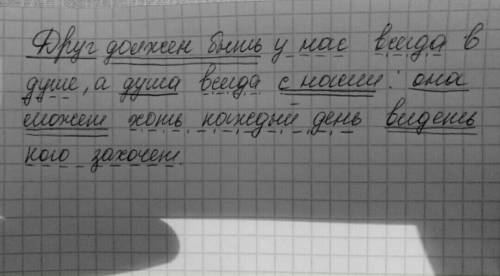 Друг должен быть у нас всегда в
душе, а душа всегда с нами: она
может хоть каждый день видеть
кого захочет.